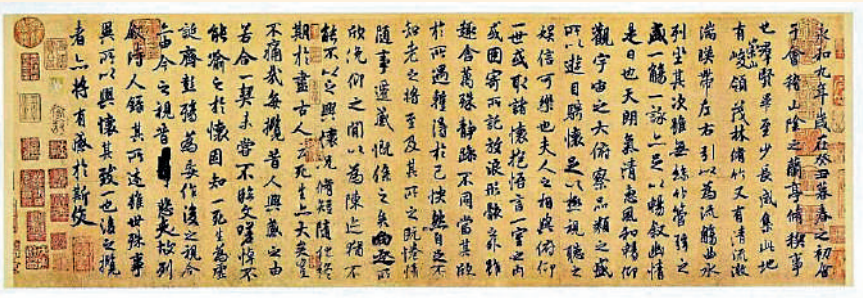 永和九年歲在癸丑暮春之初會
于會稽山陰之蘭亭脩稧事
也羣賢畢至少長咸集此地
有崇山峻領茂林脩竹又有清流激
湍暎帶左右引以為流觴曲水
列坐其次雖無絲竹管弦之
盛一觴一詠亦足以暢叙幽情
是日也天朗氣清惠風和暢仰
觀宇宙之大俯察品類之盛
所以遊目騁懷足以極視聽之
娛信可樂也夫人之相與俯仰
一世或取諸懷抱悟言一室之內
或因寄所託放浪形骸之外雖
趣舍萬殊靜躁不同當其欣
於所遇暫得於己快然自足不
知老之將至及其所之既惓情
隨事遷感慨係之矣向之所
欣俛仰之閒以為陳迹猶不
能不以之興懷況脩短隨化終
期於盡古人云死生亦大矣豈
不痛哉每攬昔人興感之由
若合一契未嘗不臨文嗟悼不
能喻之於懷固知一死生為虛
誕齊彭殤為妄作後之視今
亦由今之視昔悲夫故列
叙時人錄其所述雖世殊事
異所以興懷其致一也後之攬
者亦將有感於斯文